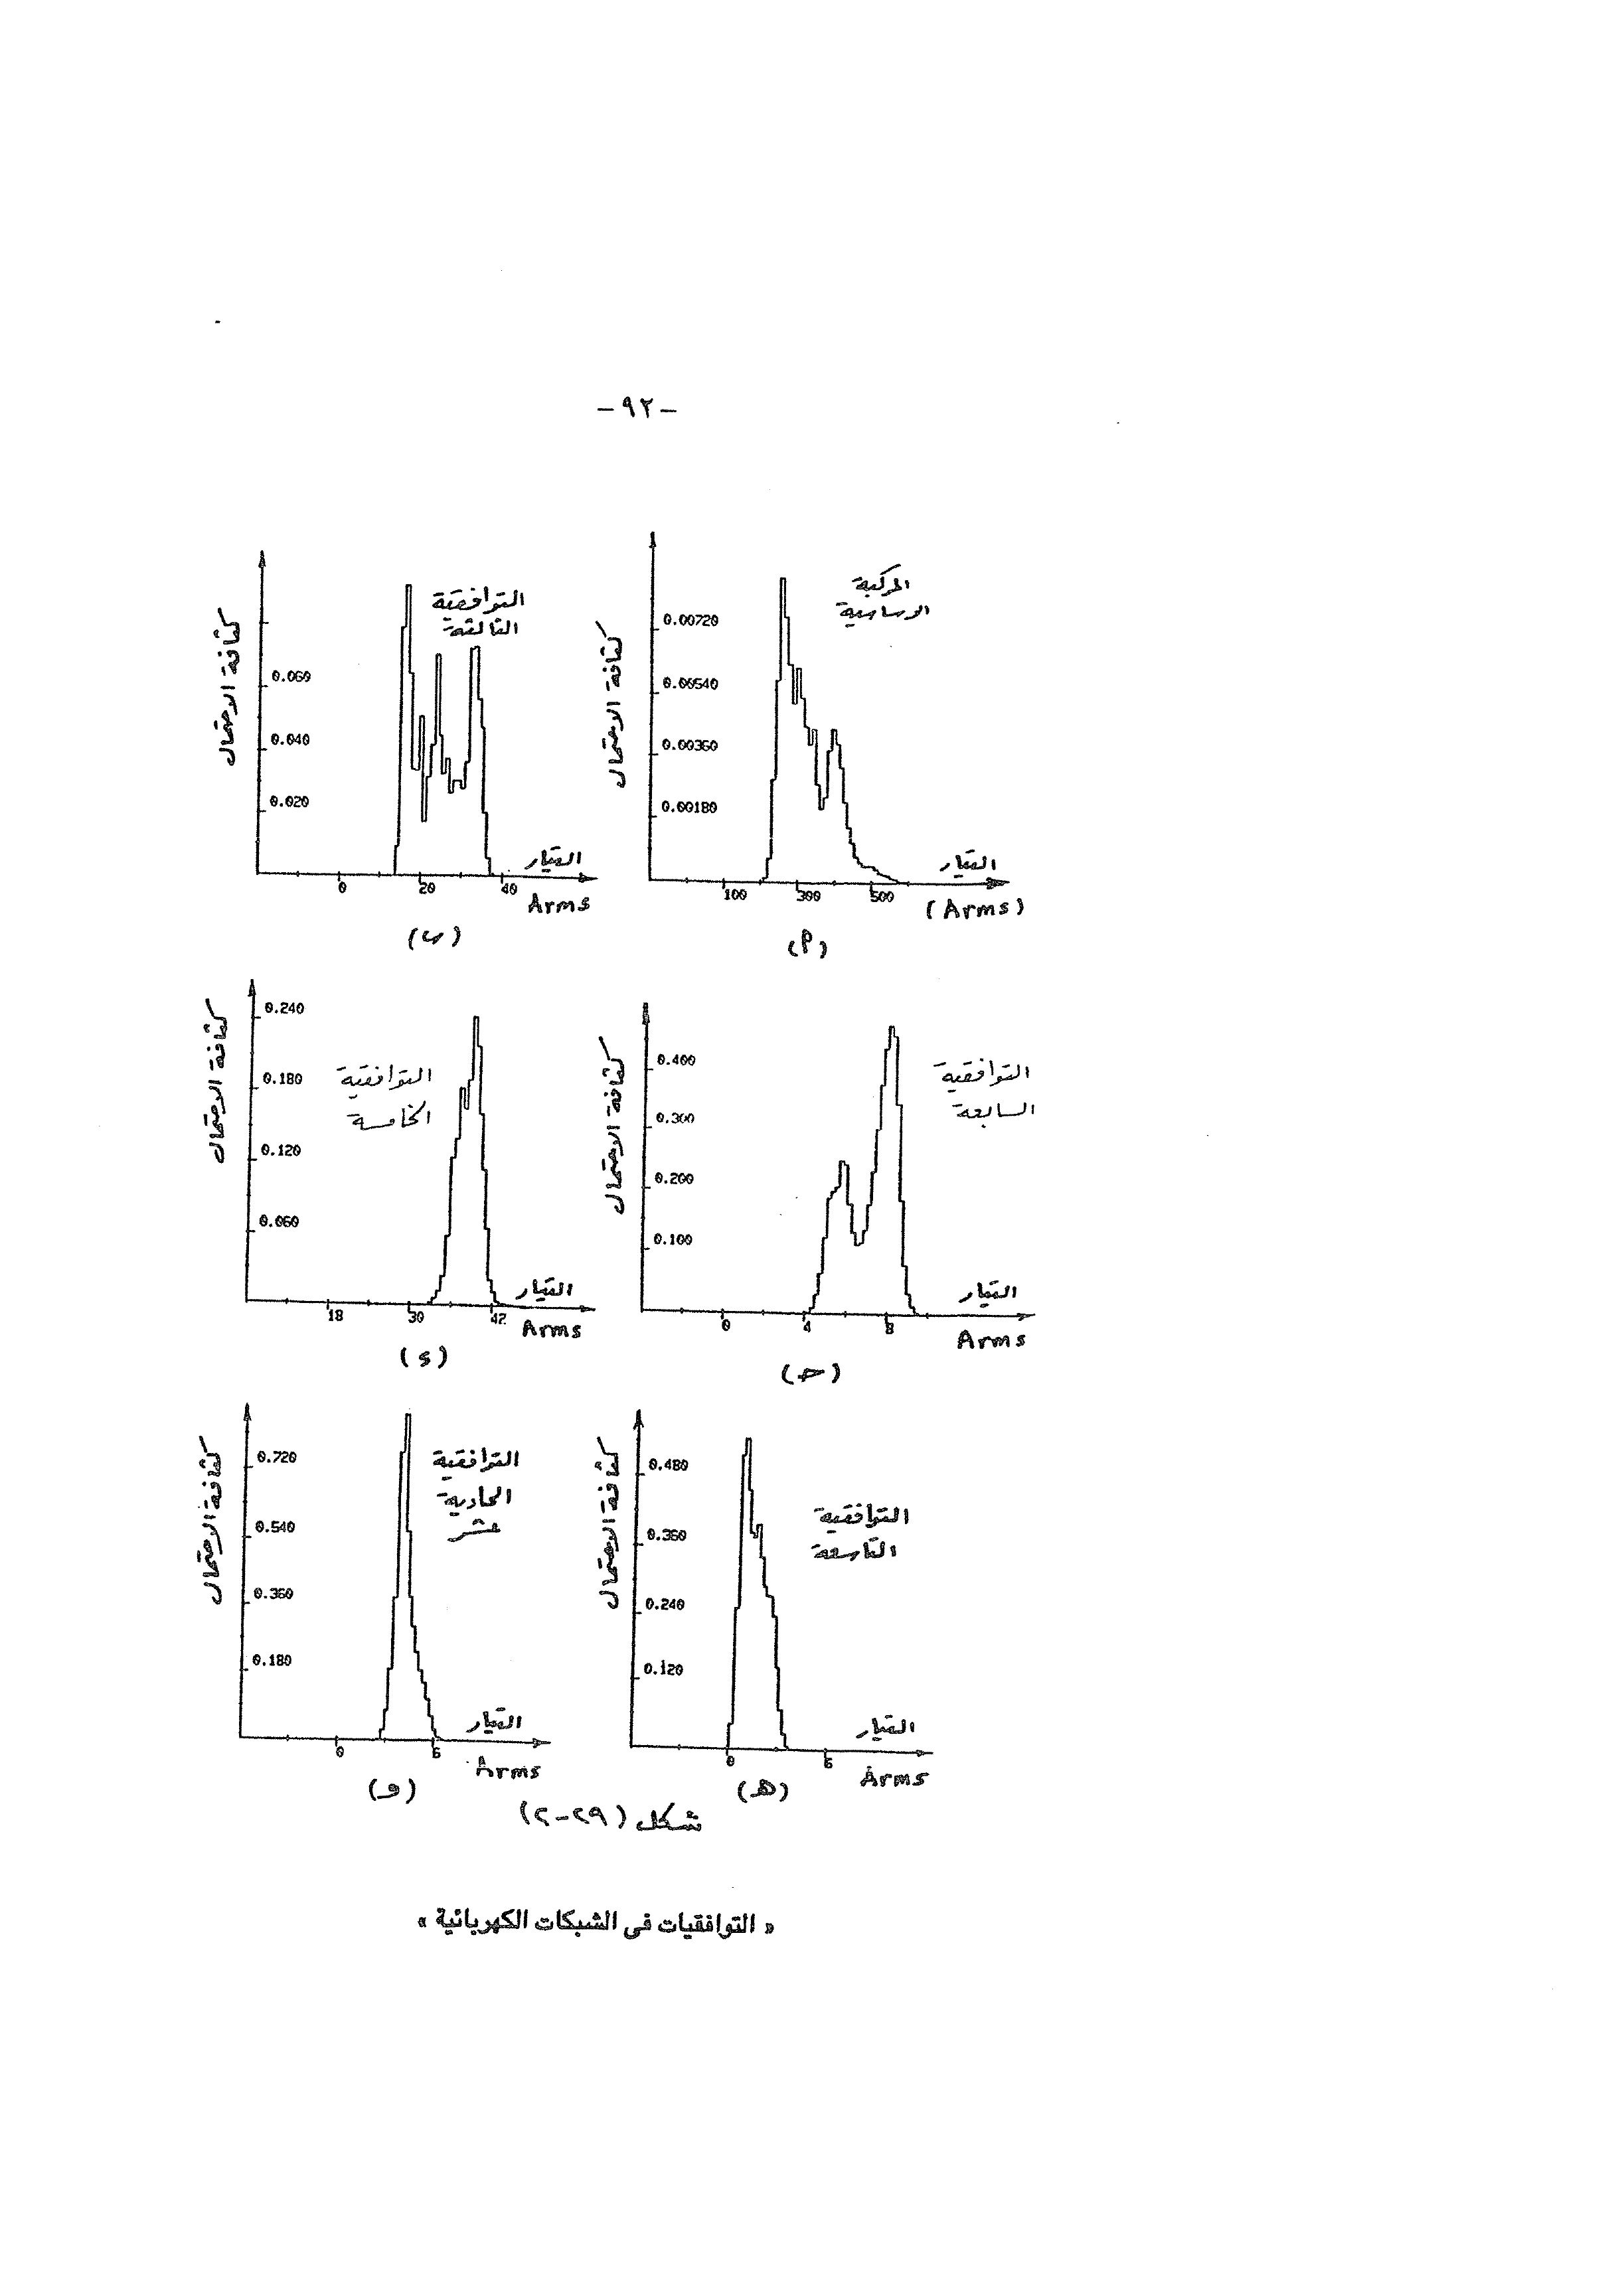 -٩٢-
المركبة
الاساسية
كثافة الاحتمال
0.00720
0.00540
0.00360
0.00180
التيار
100 300 500
(Arms)
(أ)
التوافقية
الثالثة
كثافة الاحتمال
0.060
0.040
0.020
التيار
0 20 40
Arms
(ب)
التوافقية
السابعة
كثافة الاحتمال
0.400
0.300
0.200
0.100
التيار
0 4 8
Arms
(ح)
التوافقية
الخامسة
كثافة الاحتمال
0.240
0.180
0.120
0.060
التيار
18 30 42
Arms
(د)
التوافقية
التاسعة
كثافة الاحتمال
0.480
0.360
0.240
0.120
التيار
0 6
Arms
(هـ)
التوافقية
الحادية
عشر
كثافة الاحتمال
0.720
0.540
0.360
0.180
التيار
0 6
Arms
(و)
شكل (٢٩-٢)
« التوافقيات فى الشبكات الكهربائية »